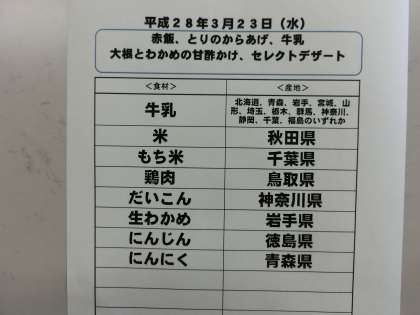 平成２８年３月２３日（水）
赤飯、とりのからあげ、牛乳
大根とわかめの甘酢かけ、セレクトデザート
＜食材＞ ＜産地＞
牛乳 北海道、青森、岩手、宮城、山
形、埼玉、栃木、群馬、神奈川、
静岡、千葉、福島のいずれか
米 秋田県
もち米 千葉県
鶏肉 鳥取県
だいこん 神奈川県
生わかめ 岩手県
にんじん 徳島県
にんにく 青森県